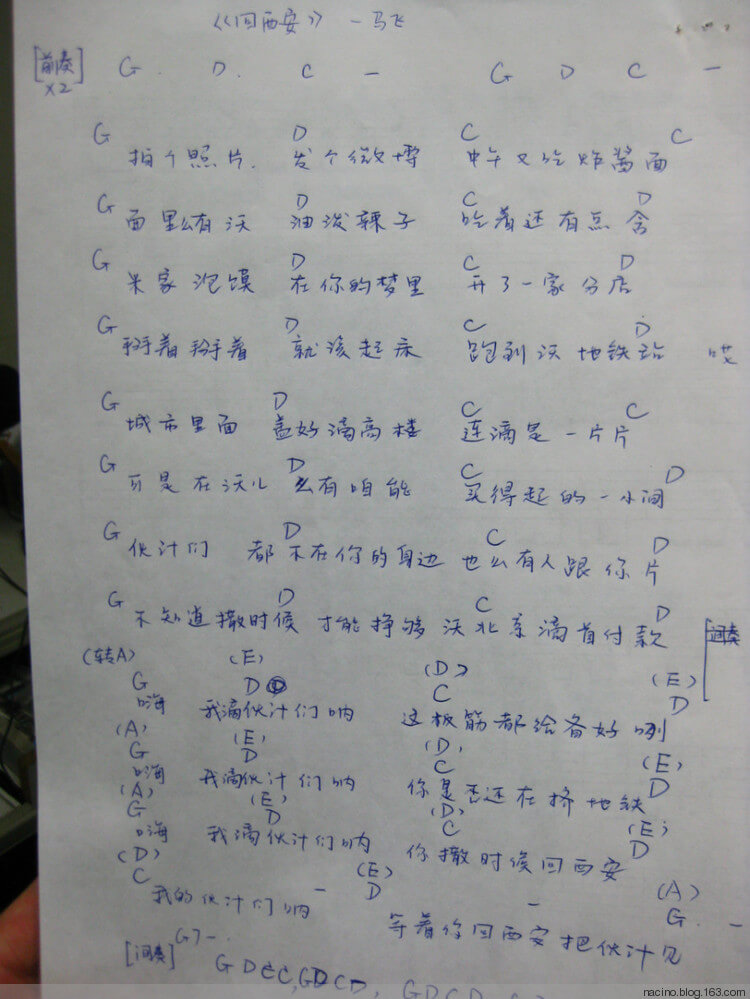 《回西安》 - 马飞
[前奏] G . D . C - G D C -
x2
G D C C
拍个照片. 发个微博 中午又吃炸酱面
G D C D
面里么有沃 油泼辣子 吃着还有点含
G D C D
米家泡馍 在你的梦里 开了一家分店
G D C D
掰着掰着 就没起床 跑到沃地铁站 哎
G D C C
城市里面 盖好滴高楼 连滴是一片片
G D C D
可是在沃儿 么有咱能 买得起的一小间
G D C D
伙计们 都不在你的身边 也么有人跟你片
G D C D
不知道撒时候 才能挣够沃北京滴首付款 [间奏
(转A) (E) (D) (E)
G D C D
嗨 我滴伙计们呐 这板筋都给备好咧
(A) (E) (D) (E)
G D C D
嗨 我滴伙计们呐 你是否还在挤地铁
(A) (E) (D) (E)
G D C D
嗨 我滴伙计们呐 你撒时候回西安
(D) (E) (A)
C - D - G . -
我的伙计们呐 等着你回西安把伙计见
[间奏] G7 - .
G D C C, G D C D, G D C D
nacino.blog.163.com